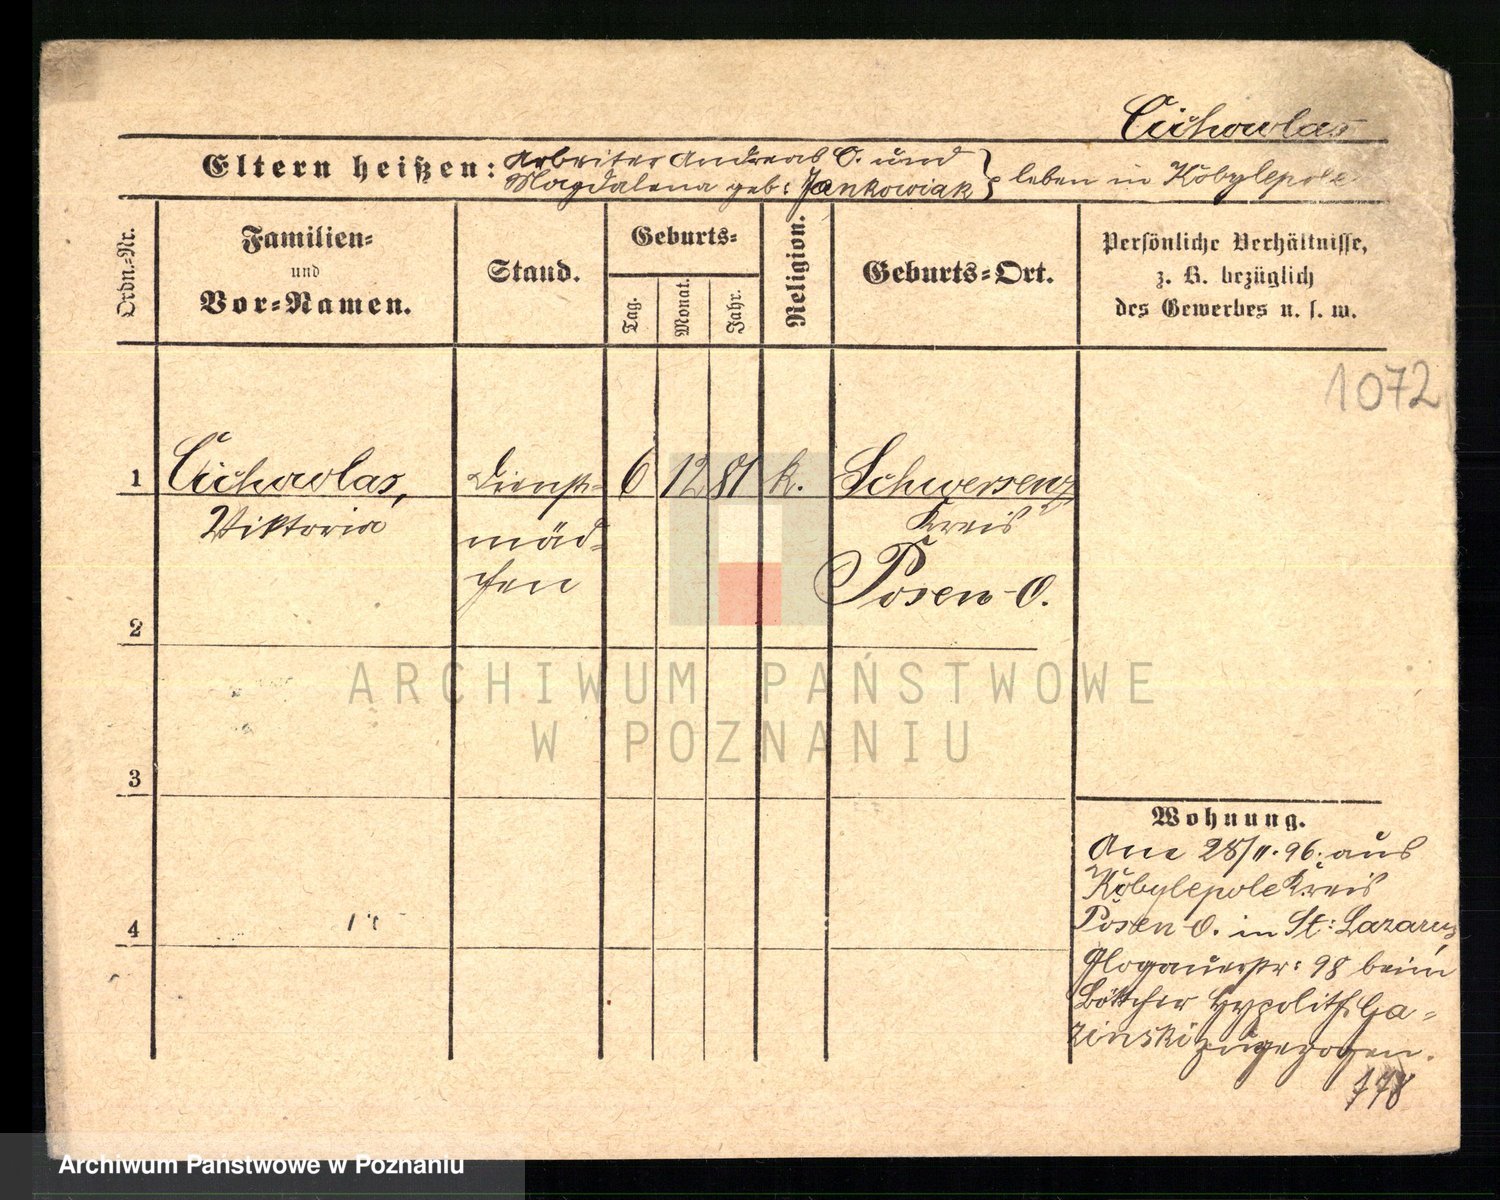 Cichowlas
Eltern heißen: Arbeiter Andreas C. und
Magdalena geb: Jankowiak } leben in Kobylepole
Ordn.-Nr.
Familien-
und
Vor-Namen.
Stand.
Geburts-
Tag.
Monat.
Jahr.
Religion.
Geburts-Ort.
Persönliche Verhältnisse,
z. B. bezüglich
des Gewerbes u. s. w.
1072
1 Cichowlas, Dienst- 6 12 81 k. Schwersenz
Viktoria mäd- Kreis
chen Posen-O.
2
ARCHIWUM PAŃSTWOWE
W POZNANIU
3
Wohnung.
Am 28/11.96. aus
Kobylepole Kreis
Posen O. in St: Lazarus,
Glogauerstr: 98 beim
Böttcher Hypolith Ga-
zinski zugezogen.
4
178
Archiwum Państwowe w Poznaniu